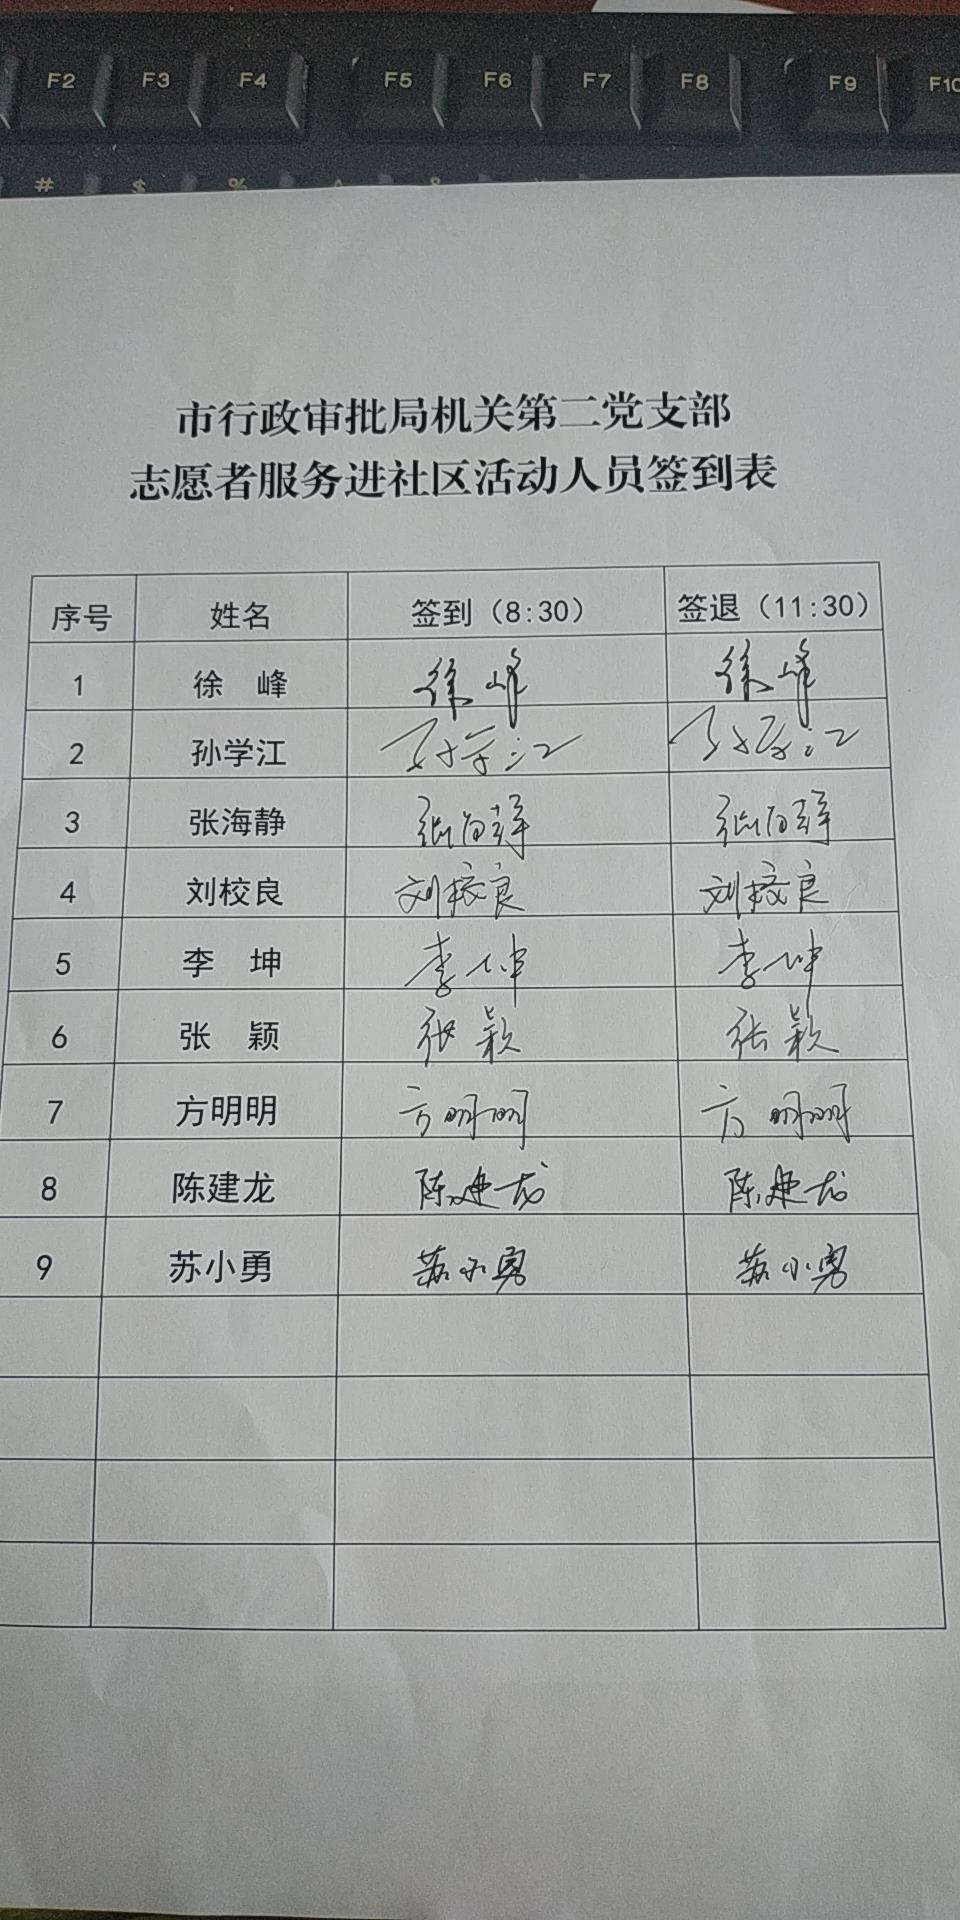 F2 F3 F4 F5 F6 F7 F8 F9 F10
# $ % ^ &
市行政审批局机关第二党支部
志愿者服务进社区活动人员签到表
序号 姓名 签到（8:30） 签退（11:30）
1 徐 峰 徐峰 徐峰
2 孙学江 孙学江 孙学江
3 张海静 张海静 张海静
4 刘校良 刘校良 刘校良
5 李 坤 李坤 李坤
6 张 颖 张颖 张颖
7 方明明 方明明 方明明
8 陈建龙 陈建龙 陈建龙
9 苏小勇 苏小勇 苏小勇